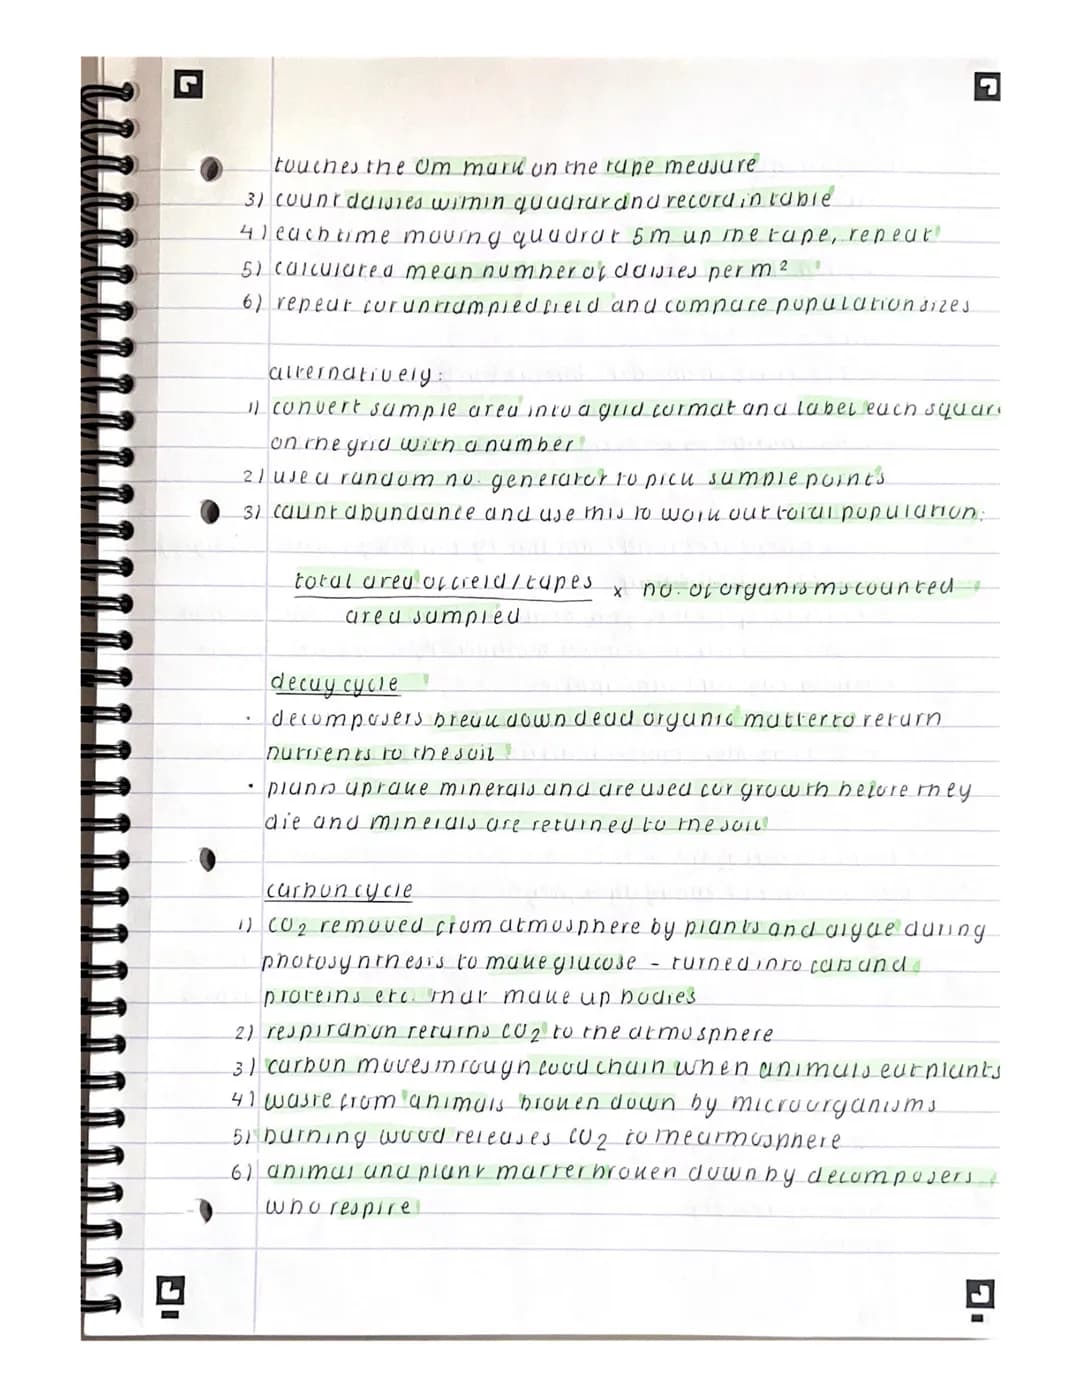 touches the 0m mark on the tape measure
3) count daisies within quadrat and record in table
4) each time moving quadrat 5m up the tape, repeat
5) calculate a mean number of daisies per m²
6) repeat for untrampled field and compare population sizes
alternatively:
1) convert sample area into a grid format and label each square
on the grid with a number
2) use a random no. generator to pick sample points
3) count abundance and use this to work out total population:
total area of field / tapes x no. of organisms counted
area sampled
decay cycle
· decomposers break down dead organic matter to return
nutrients to the soil
· plants uptake minerals and are used for growth before they
die and minerals are returned to the soil
carbon cycle
1) CO₂ removed from atmosphere by plants and algae during
photosynthesis to make glucose - turned into cars and
proteins etc. that make up bodies
2) respiration returns CO₂ to the atmosphere
3) carbon moves through food chain when animals eat plants
4) waste from animals broken down by microorganisms
5) burning wood releases CO₂ to the atmosphere
6) animal and plant matter broken down by decomposers
who respire